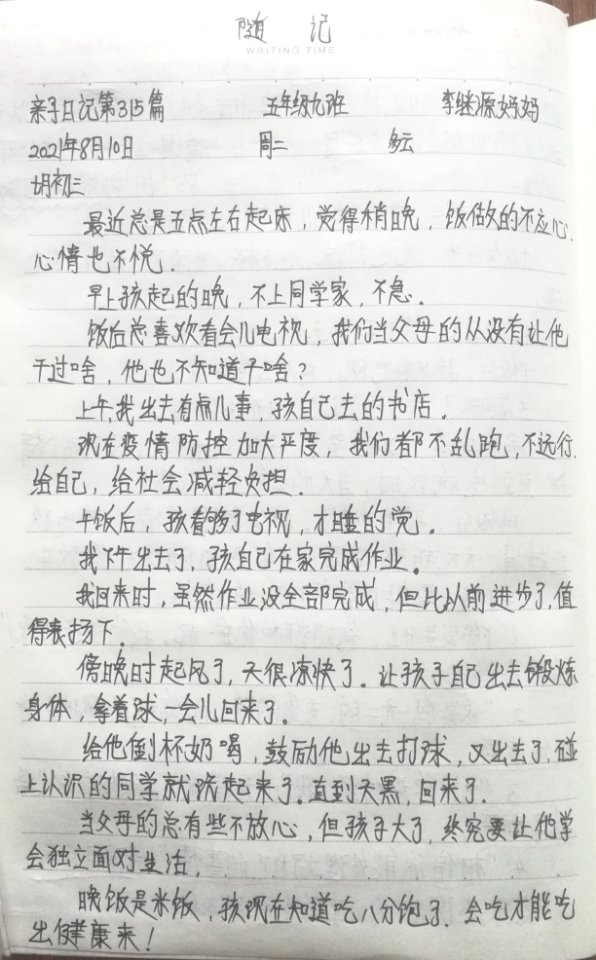 随 记
WRITING TIME
亲子日记第315篇 五年级九班 李继源妈妈
2021年8月10日 周二 多云
胡初三
最近总是五点左右起床，觉得稍晚，饭做的不应心，
心情也不悦．
早上孩起的晚，不上同学家，不急．
饭后总喜欢看会儿电视，我们当父母的从没有让他
干过啥，他也不知道干啥？
上午我出去有点儿事，孩自己去的书店．
现在疫情防控加大严度，我们都不乱跑，不远行，
给自己，给社会减轻负担．
午饭后，孩看够了电视，才睡的觉．
我下午出去了，孩自己在家完成作业．
我回来时，虽然作业没全部完成，但比以前进步了，值
得表扬下．
傍晚时起风了，天很凉快了．让孩子自己出去锻炼
身体，拿着球，一会儿回来了．
给他倒杯奶喝，鼓励他出去打球，又出去了，碰
上认识的同学就玩起来了．直到天黑，回来了．
当父母的总有些不放心，但孩子大了，终究要让他学
会独立面对生活，
晚饭是米饭，孩现在知道吃八分饱了．会吃才能吃
出健康来！